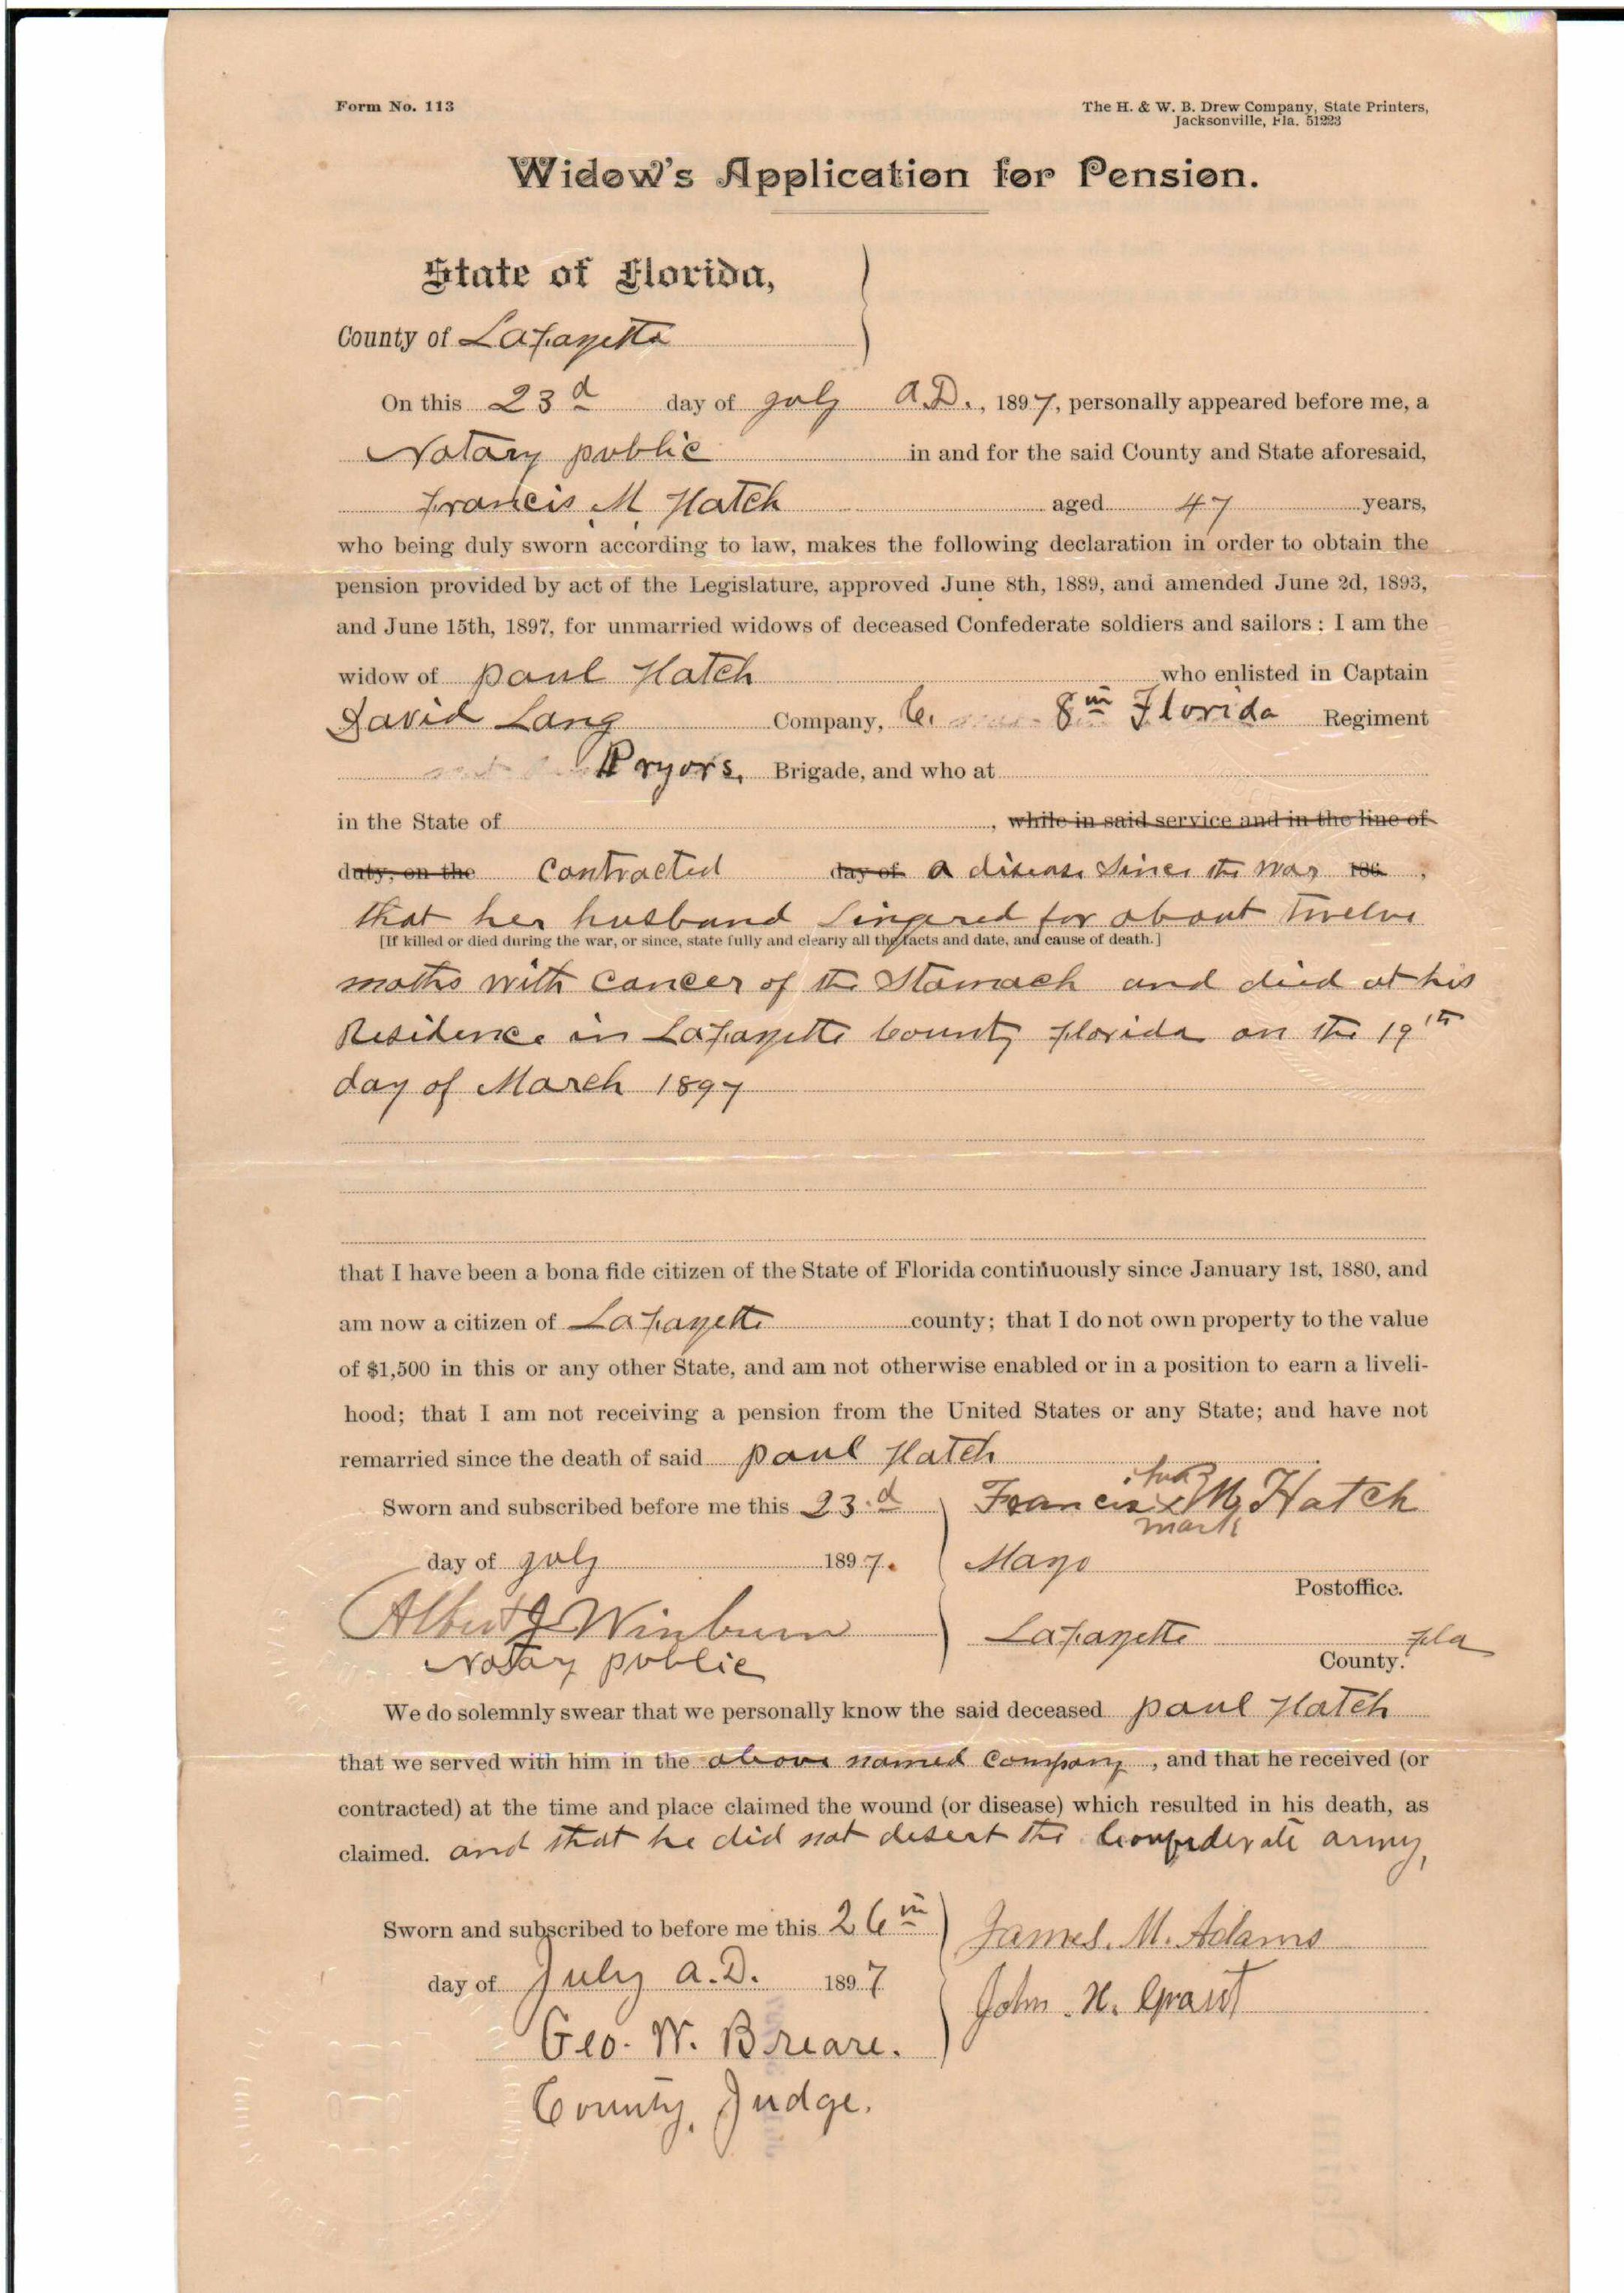 Form No. 113
The H. & W. B. Drew Company, State Printers,
Jacksonville, Fla. 51223
Widow's Application for Pension.
State of Florida,
County of Lafayette
On this 23d day of July A.D., 1897, personally appeared before me, a
Notary public in and for the said County and State aforesaid,
Francis M. Hatch aged 47 years,
who being duly sworn according to law, makes the following declaration in order to obtain the
pension provided by act of the Legislature, approved June 8th, 1889, and amended June 2d, 1893,
and June 15th, 1897, for unmarried widows of deceased Confederate soldiers and sailors; I am the
widow of paul Hatch who enlisted in Captain
David Lang Company, C. 8th Florida Regiment
Pryors, Brigade, and who at
in the State of , while in said service and in the line of
duty, on the Contracted day of a disease Since the war 186 ,
that her husband Lingered for about Twelve
[If killed or died during the war, or since, state fully and clearly all the facts and date, and cause of death.]
moths with Cancer of the Stomach and died at his
Residence in Lafayette County florida on the 19th
day of March 1897
that I have been a bona fide citizen of the State of Florida continuously since January 1st, 1880, and
am now a citizen of Lafayette county; that I do not own property to the value
of $1,500 in this or any other State, and am not otherwise enabled or in a position to earn a liveli-
hood; that I am not receiving a pension from the United States or any State; and have not
remarried since the death of said paul Hatch
Sworn and subscribed before me this 23.d
day of July 1897.
Albert J Winburn
Notary public
her
Francis x M Hatch
mark
Mayo
Postoffice.
Lafayette fla
County.
We do solemnly swear that we personally know the said deceased paul Hatch
that we served with him in the above named Company, and that he received (or
contracted) at the time and place claimed the wound (or disease) which resulted in his death, as
claimed. and that he did not desert the Confederate army,
Sworn and subscribed to before me this 26th
day of July A.D. 1897
Geo. W. Breare.
County Judge.
James. M. Adams
John. H. Grant